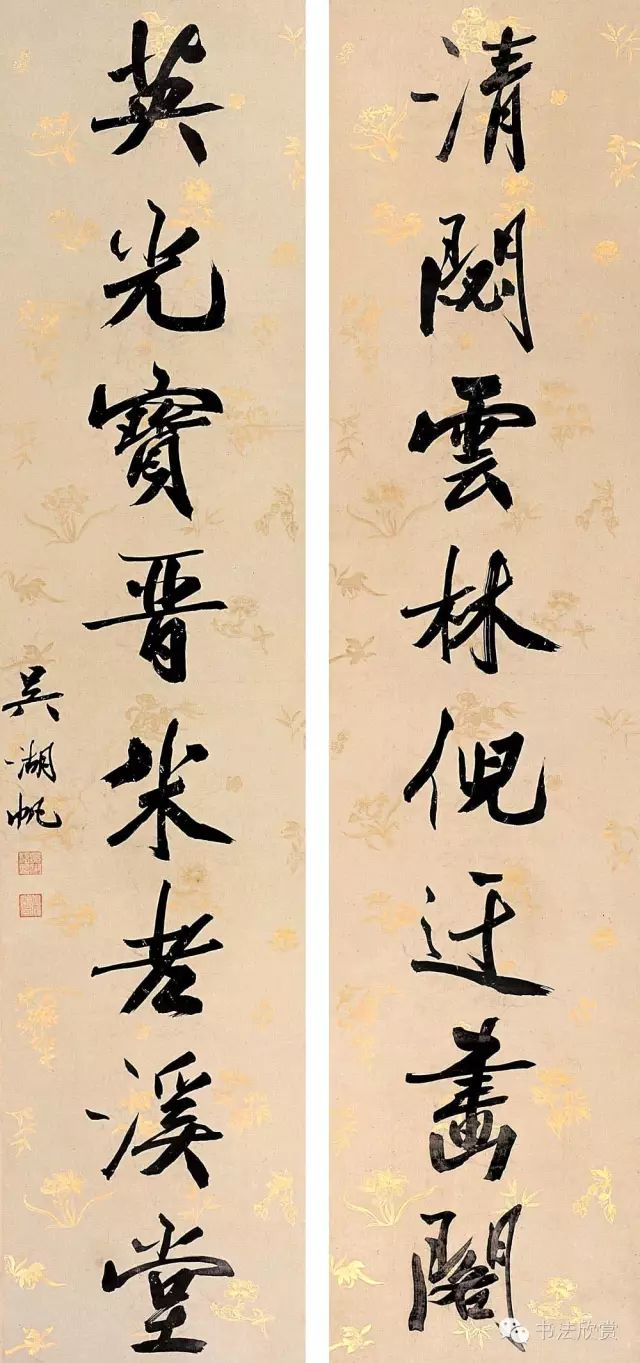 清閟雲林倪迂畫閣
英光寶晉米老溪堂
吳湖帆
书法欣赏